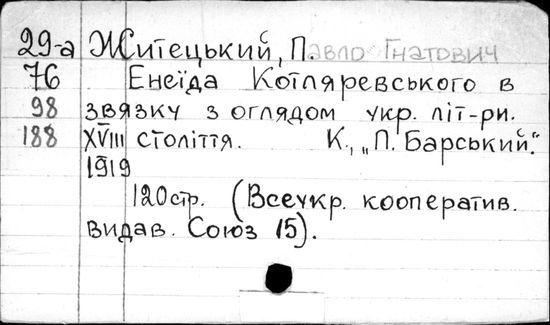 29-а Житецький, Павло Гнатович
76 Енеїда Котляревського в
98 звязку з оглядом укр. літ-ри.
188 XVIII століття. К., „П. Барський".
1919
120стр. (Всеукр. кооператив.
видав. Союз 15).